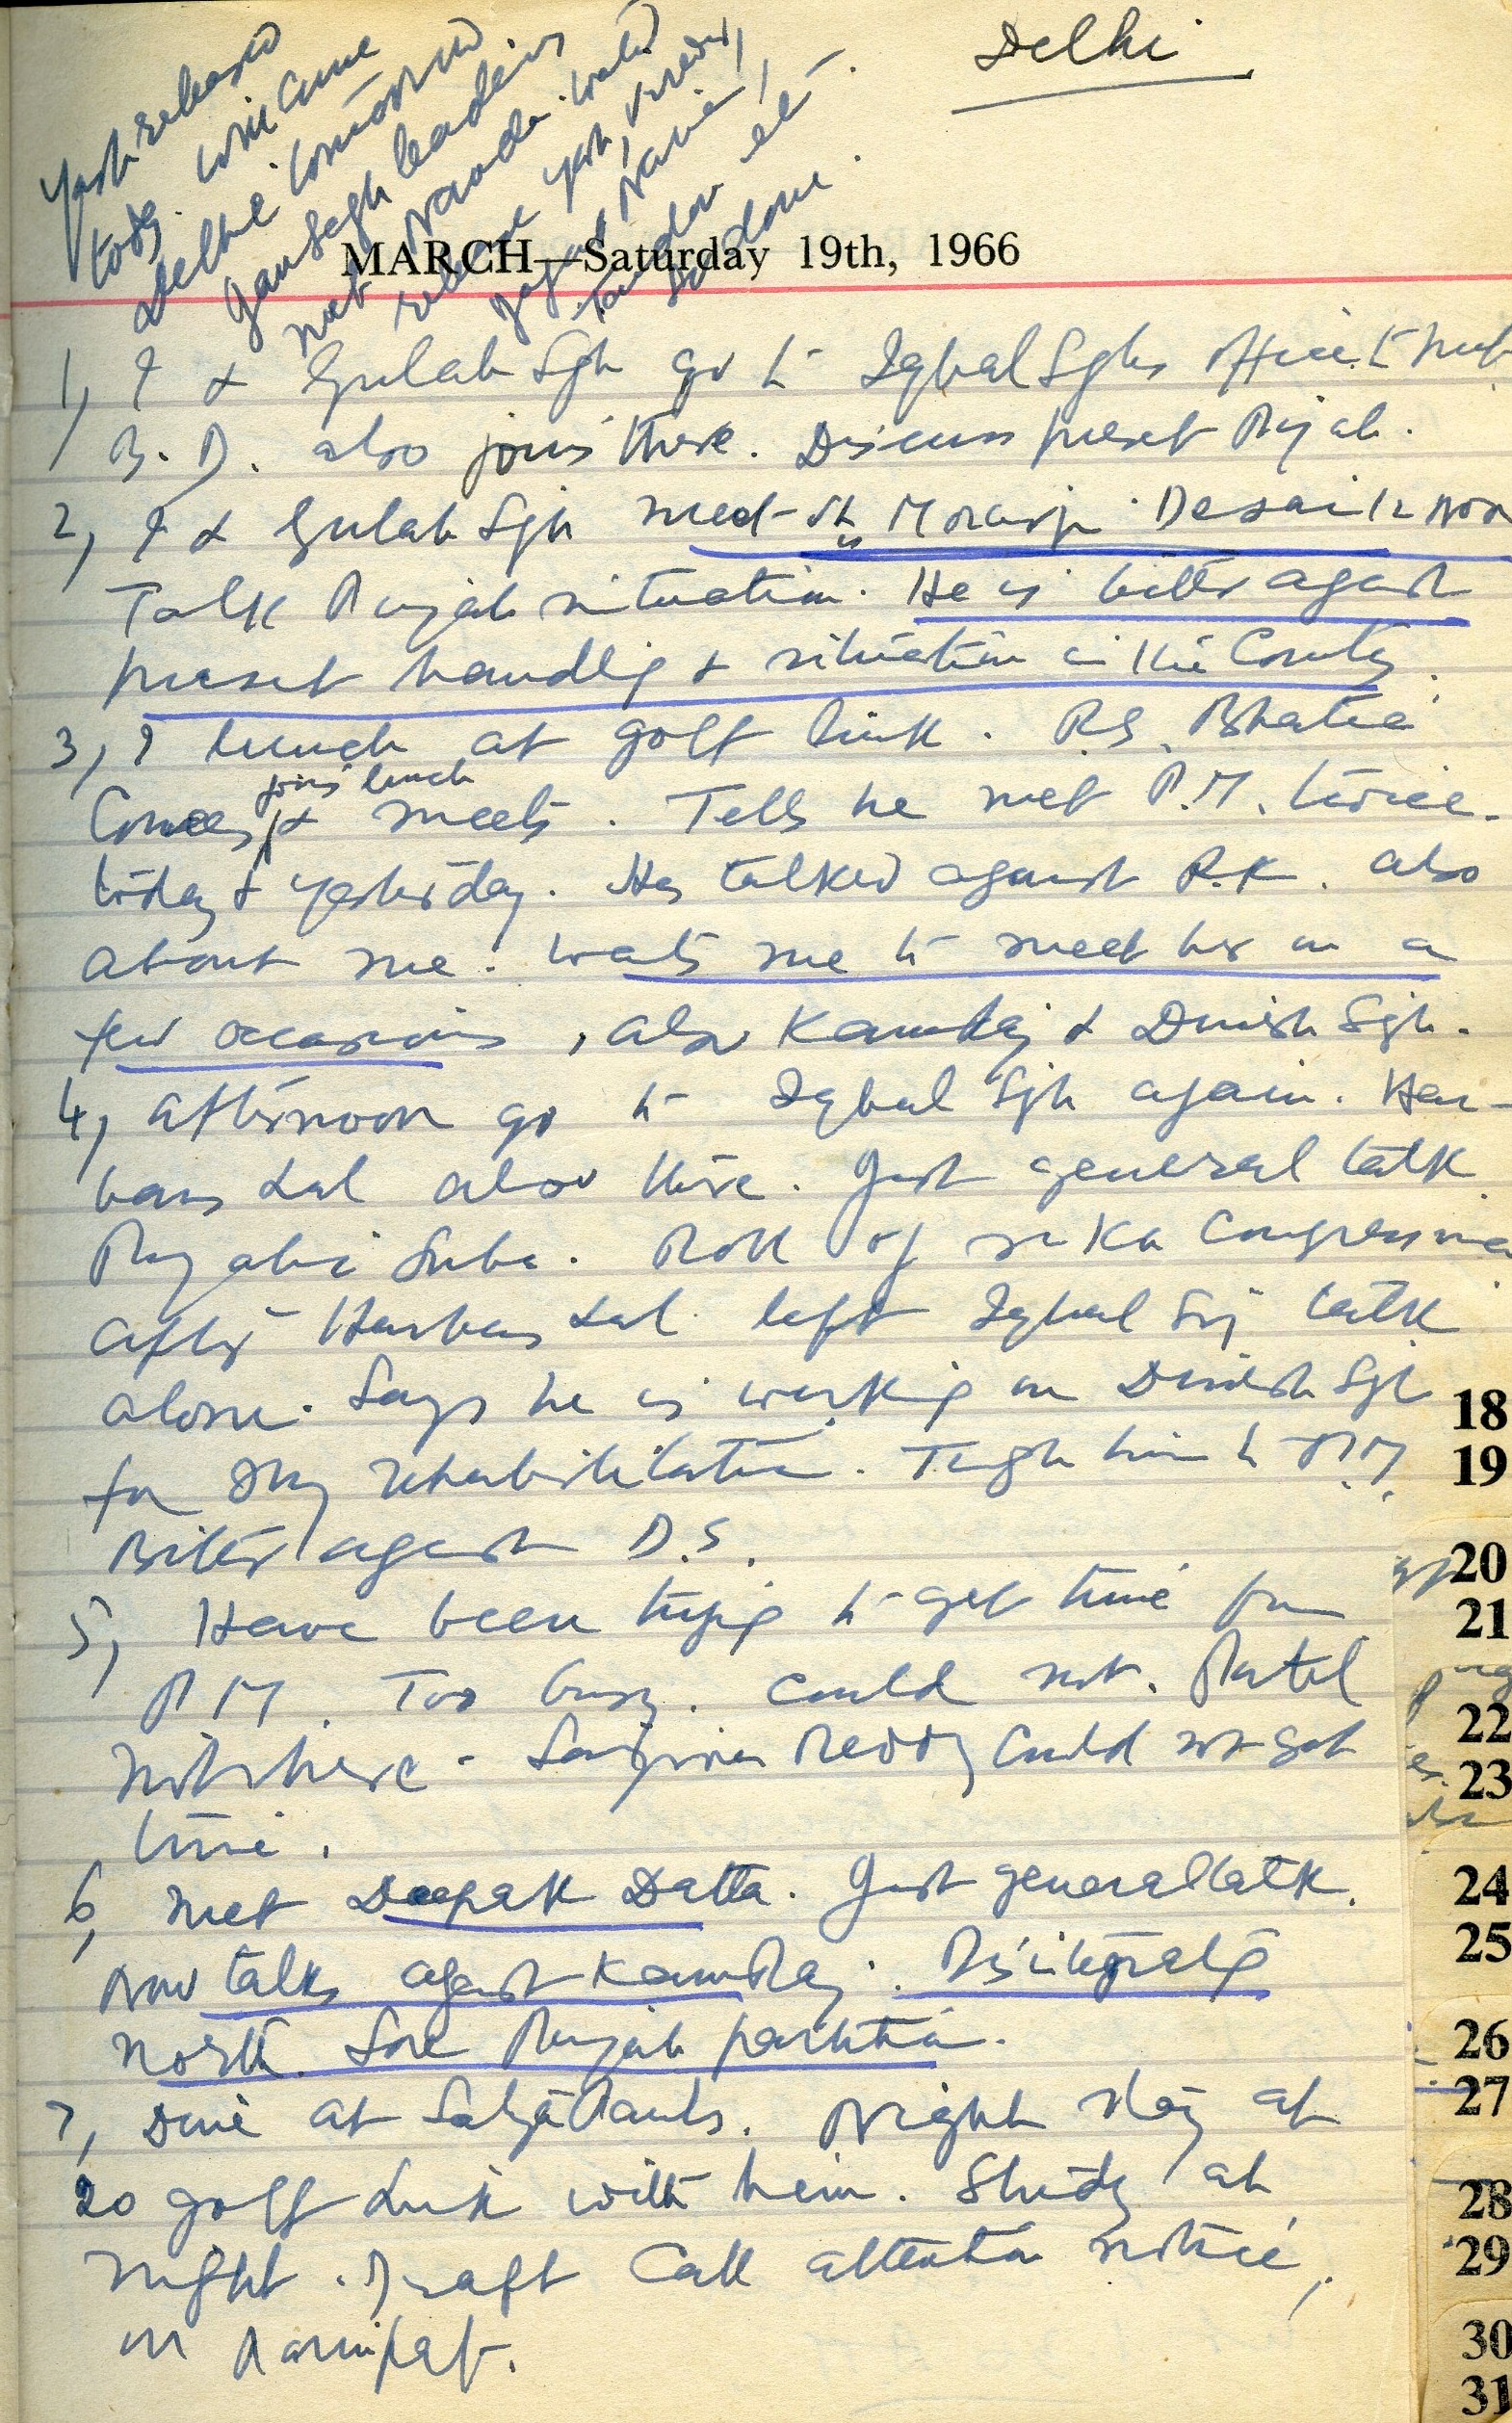 Delhi
Yash released
today. Will come
Delhi tomorrow
Jan Sagh leaders
met Nanda. wated
release Yash, Virendra,
Jagat Narain,
Tandon etc.
So done.
MARCH—Saturday 19th, 1966
1, I & Gulab Sgh go to Iqbal Sghs office to meet
B. D. also joins there. Discuss preset Pujab.
2, I & Gulab Sgh meet Sh Morarji Desai 12 noon
Talk Punjab situation. He is bitter against
preset handlig & situation in the Country.
3, I lunch at golf link. R.S. Bhatia
Comes & joins lunch meets. Tells he met P.M. twice.
today & yesterday. Has talked against R.K. also
about me. wats me to meet her on a
few occasions, also Kamraj & Dinesh Sgh.
4, afternoon go to Iqbal Sgh again. Har-
bans Lal also there. Just general talk
Pujabi Suba. Roll of Congressmen
after Harbans Lal left Iqbal Sig talk
alone. Says he is workig on Dinesh Sgh
for my rehabilitation. Tugh him to P.M.
Bitter against D.S.
5, Have been tryig to get time from
P M. Too busy. Could not. Patel
not here - Sanjiva Reddy could not get
time.
6, met Deepak Datta. Just general talk.
Now talks against KamRaj. Disitegratig
North. Sore Punjab partition.
7, Dine at SatyaPauls. Night stay at
20 golf Link with him. Study at
night. Draft Call attention notice,
on Panipat.
18
19
20
21
22
23
24
25
26
27
28
29
30
31